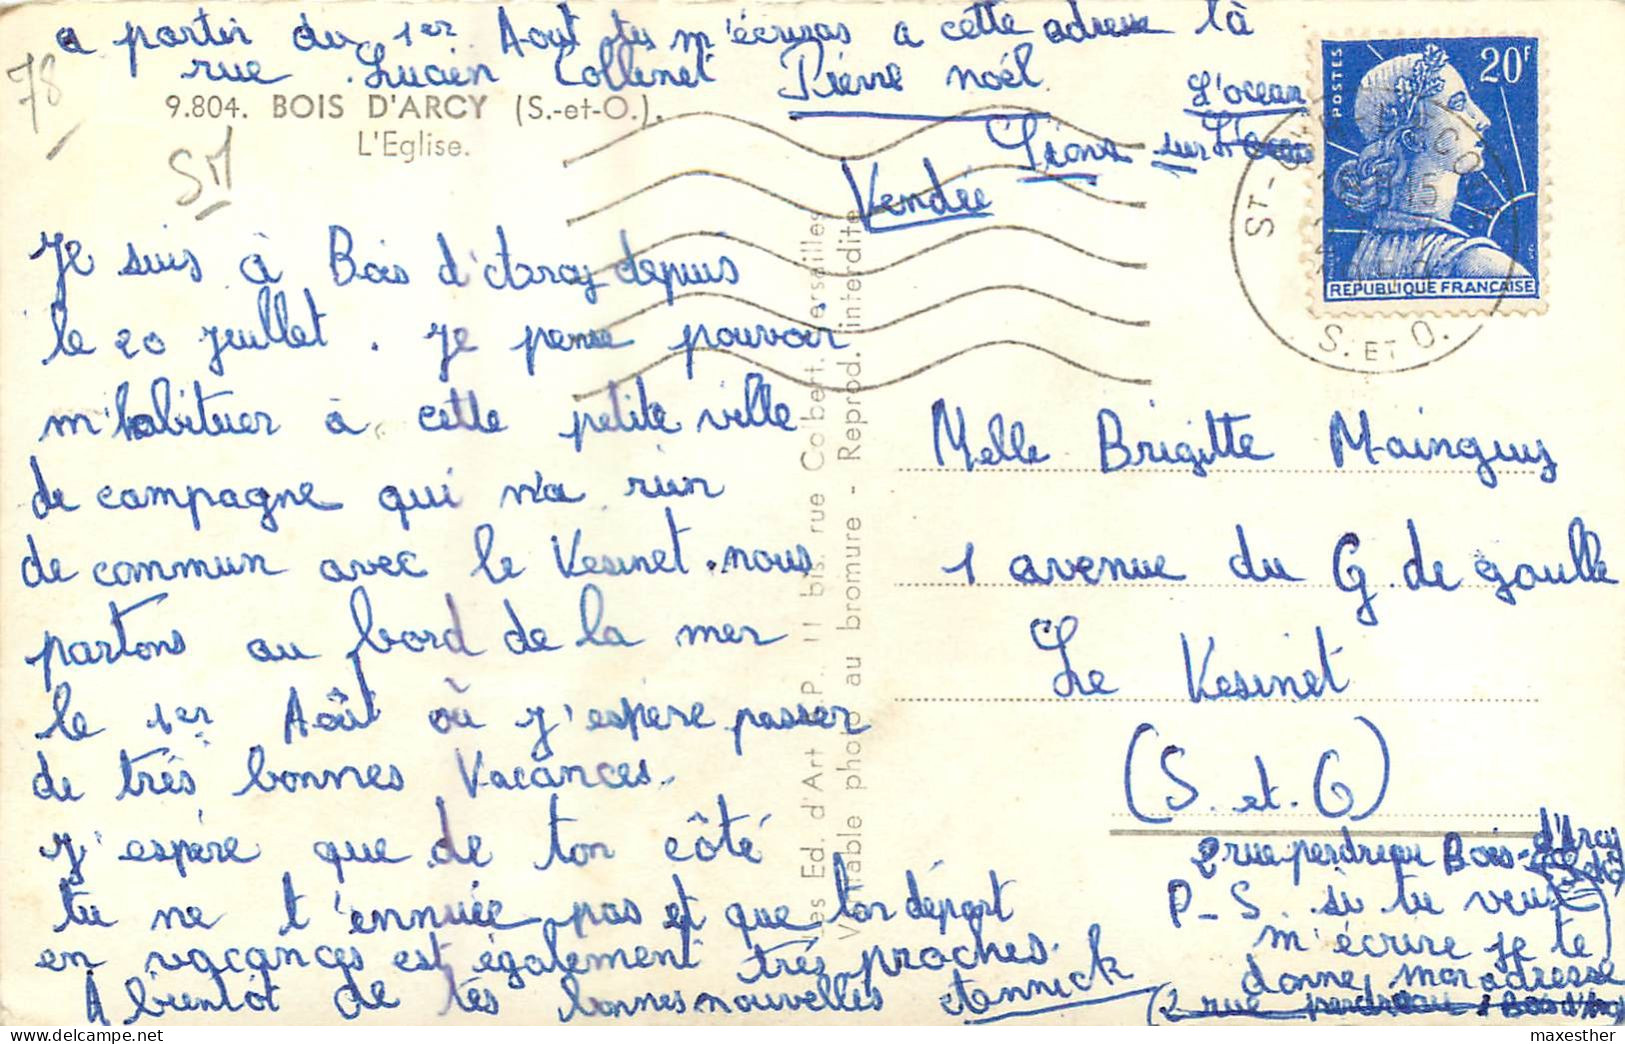 a partir du 1er Aout tu m'écriras a cette adresse là
rue Lucien Collinet Pierre noël
L'ocean
sur
Vendée
78
SM
9.804. BOIS D'ARCY (S.-et-O.).
L'Eglise.
POSTES
20F
REPUBLIQUE FRANÇAISE
S. ET O.
Je suis à Bois d'Arcy depuis
le 20 juillet. Je pense pouvoir
m'habituer à cette petite ville
de campagne qui n'a rien
de commun avec le Vesinet. nous
partons au bord de la mer
le 1er Août où j'espère passer
de très bonnes vacances.
j'espère que de ton côté
tu ne t'ennuie pas et que ton départ
en vacances est également très proches.
A bientôt de tes bonnes nouvelles Annick
Les Ed. d'Art P., 11 bis, rue Colbert, Versailles
Véritable photo au bromure - Reprod. interdite
Melle Brigitte Mainguy
1 avenue du G. de gaulle
Le Vesinet
(S. et. O)
2 rue perdreau Bois d'Arcy
P-S. si tu veux
m'écrire je te
donne mon adresse
(2 rue perdreau Bois d'Arcy
maxesther